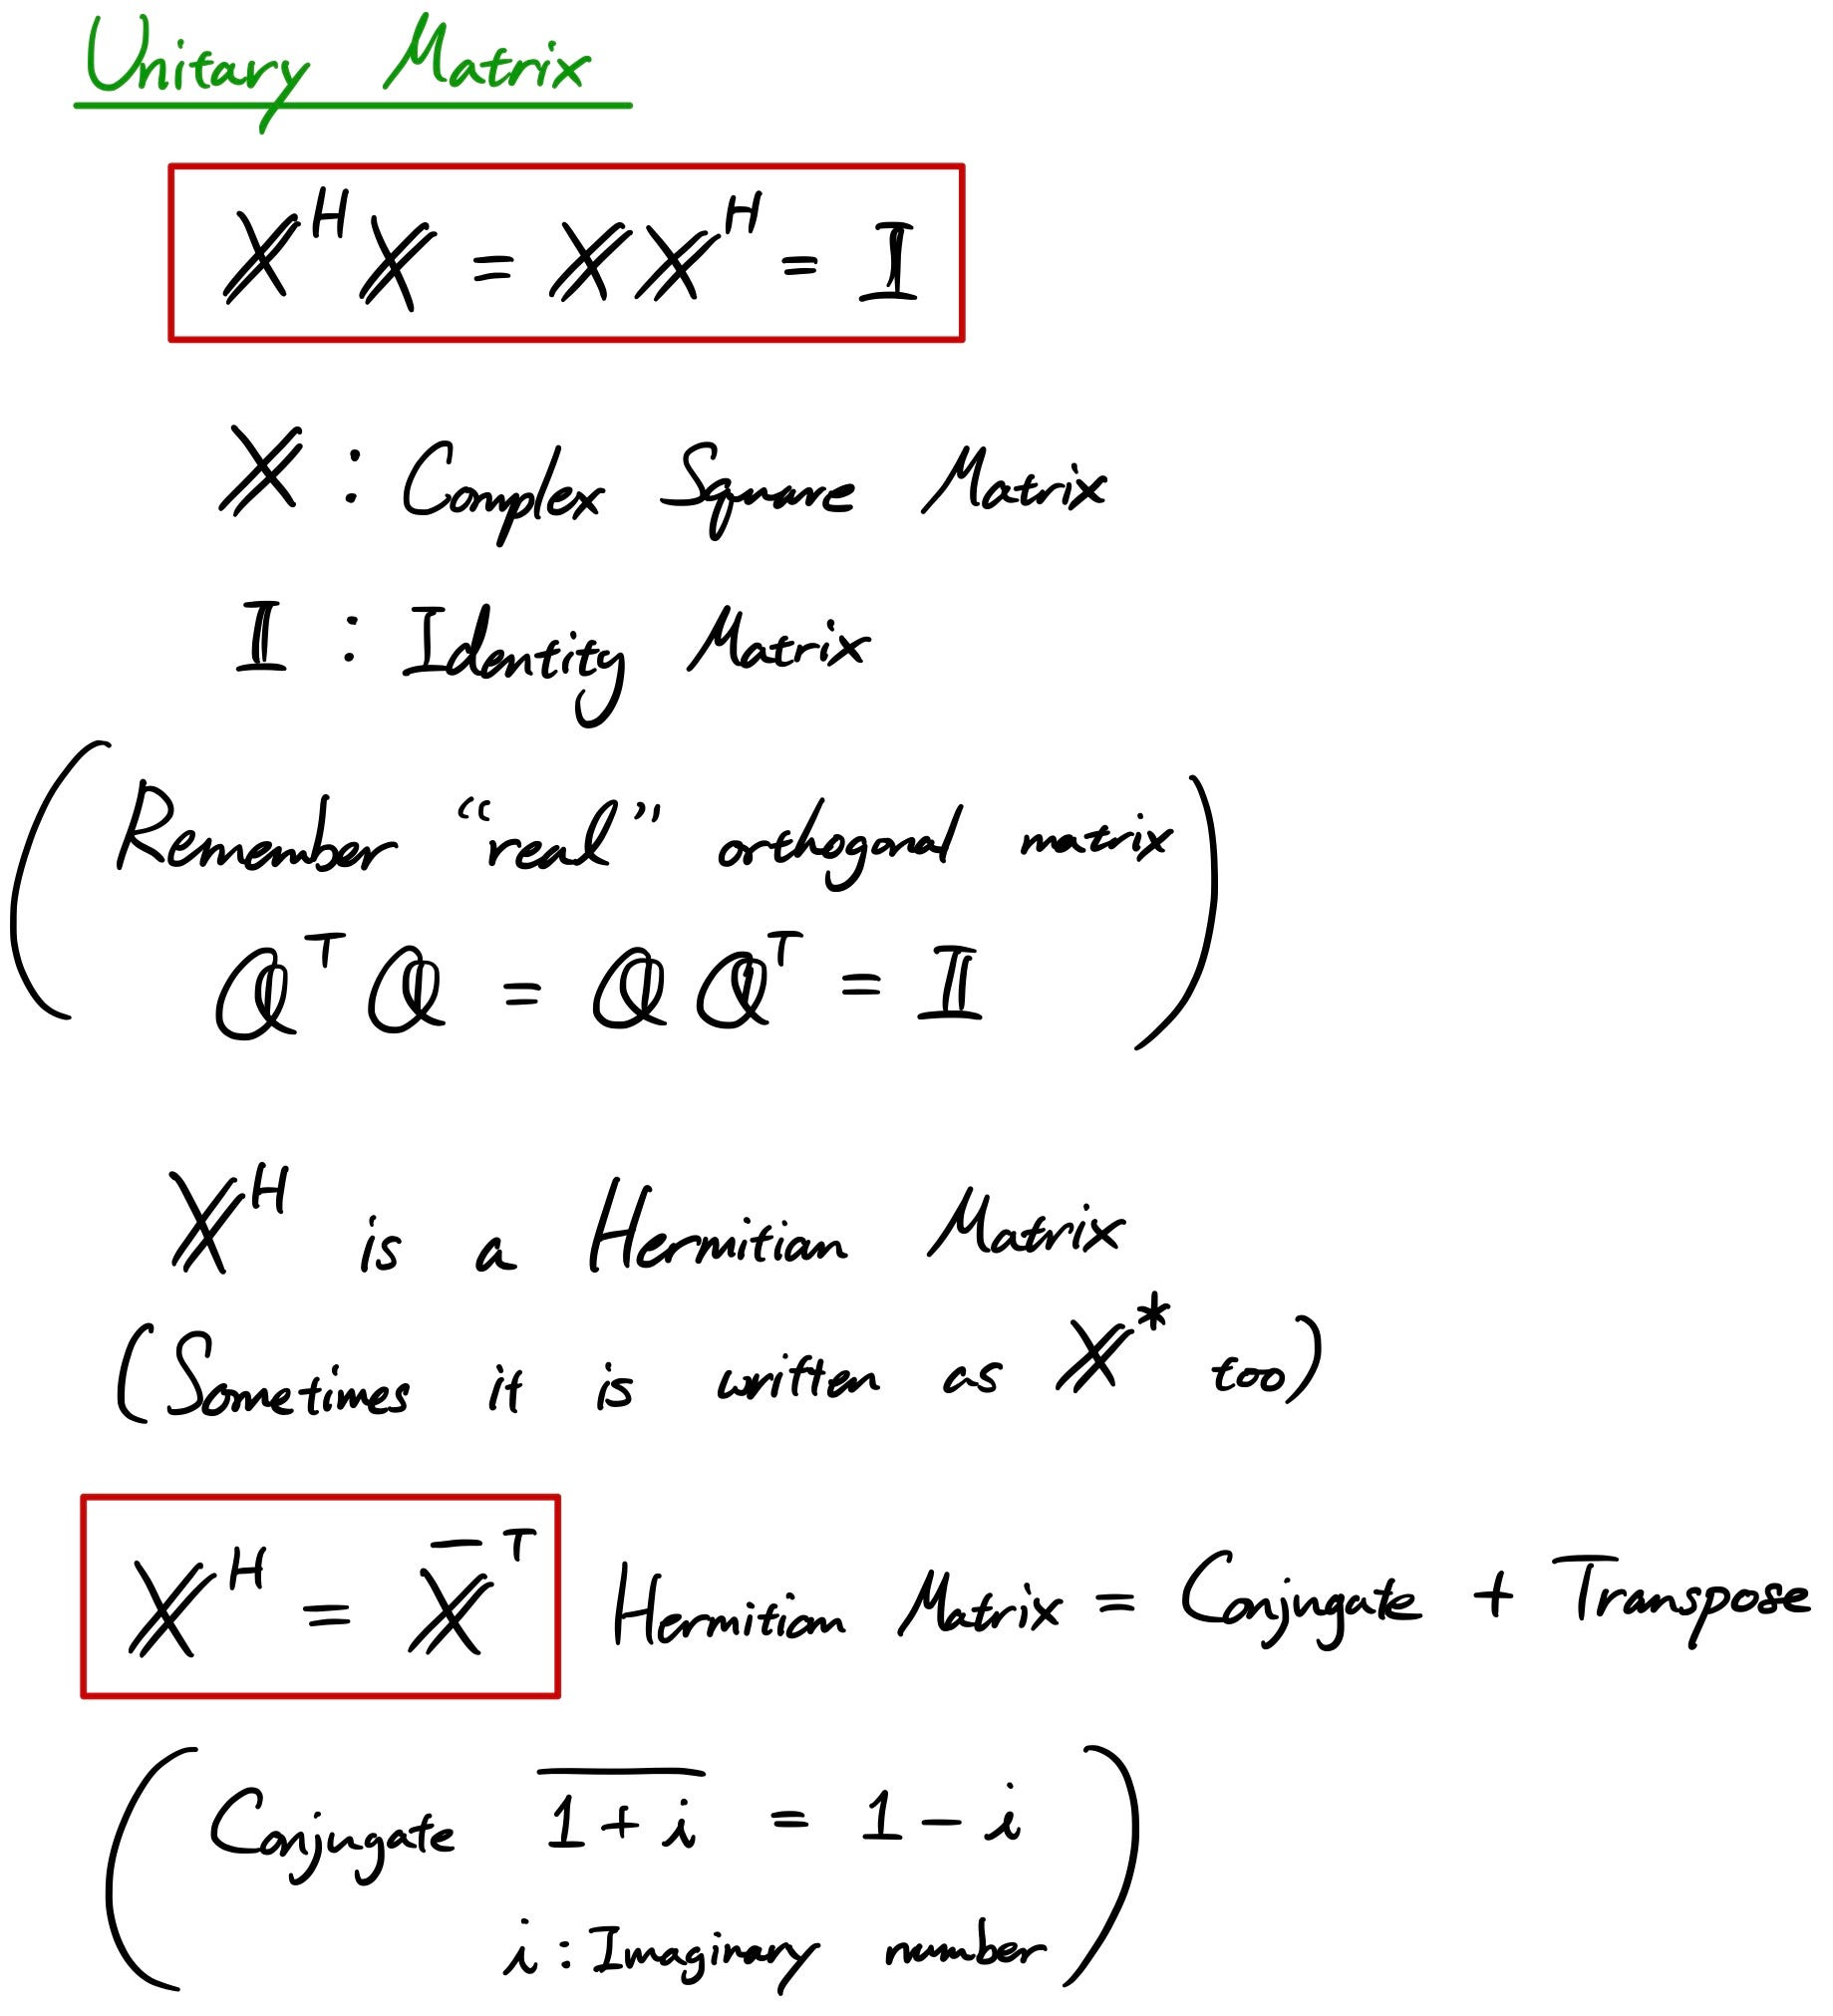 Unitary Matrix
𝕏ᴴ𝕏 = 𝕏𝕏ᴴ = 𝕀
𝕏 : Complex Square Matrix
𝕀 : Identity Matrix
(Remember “real” orthogonal matrix
ℚᵀℚ = ℚℚᵀ = 𝕀)
𝕏ᴴ is a Hermitian Matrix
(Sometimes it is written as 𝕏* too)
𝕏ᴴ = 𝕏̅ᵀ Hermitian Matrix = Conjugate + Transpose
(Conjugate \overline{1 + i} = 1 - i
i : Imaginary number)